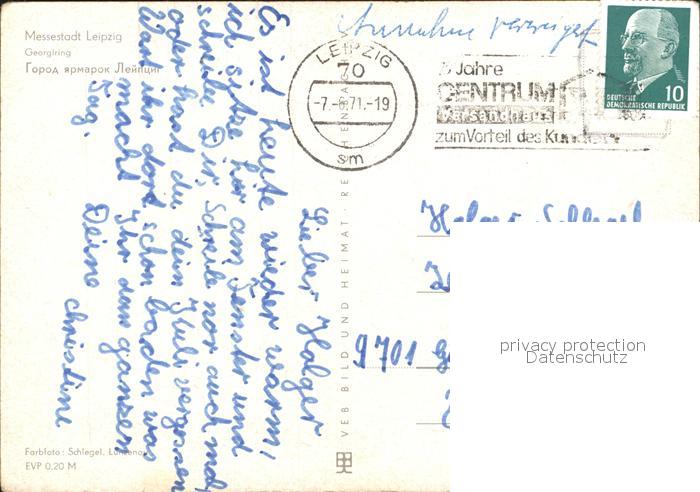 Messestadt Leipzig
Georgiring
Город ярмарок Лейпциг
Annahme verweigert
LEIPZIG
70
-7.-6.71.-19
sm
Jahre
CENTRUM
Versandhaus
zum Vorteil des Kunden
DEUTSCHE
DEMOKRATISCHE REPUBLIK
10
Lieber Holger
Es ist heute wieder warm,
ich sitze hir am Fenster und
schreibe Dir. Schreibe nor auch mal,
oder hast du dein vergessen
Wart ihr dort schon baden was
macht Ihr den ganzen
Tag.
Deine Christine
VEB BILD UND HEIMAT REICHENBACH
Holger
9701
privacy protection
Datenschutz
Farbfoto: Schlegel, Lunzenau
EVP 0,20 M